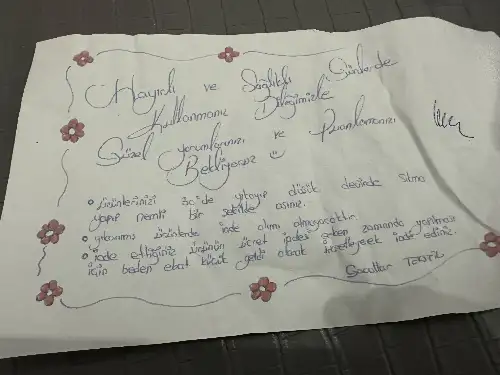 Hayırlı ve Sağlıklı Günlerde
Kullanmanız Dileğimizle
Güzel yorumlarınızı ve Puanlamanızı
Bekliyoruz
• Ürünlerinizi 30°de yıkayıp düşük devirde sıkma
yapıp nemli bir şekilde asınız.
• yıkanmış ürünlerde iade alımı olmayacaktır.
• iade ettiğiniz ürünün ücret iadesi erken zamanda yapılması
için beden ebat küçük geldi olarak işaretleyerek iade ediniz.
TEKSTİL